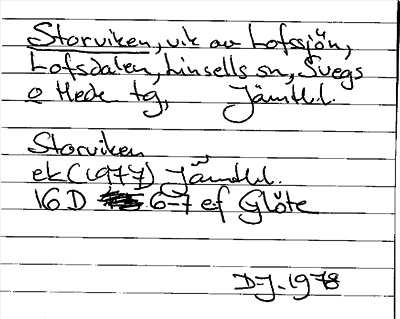 Storviken, vik av Lofssjön,
Lofsdalen, Linsells sn, Svegs
o Hede tg, Jämtl.l.
Storviken
ek (1977) Jämtl.l.
16 D 6-7 ef Glöte
D-J. 1978